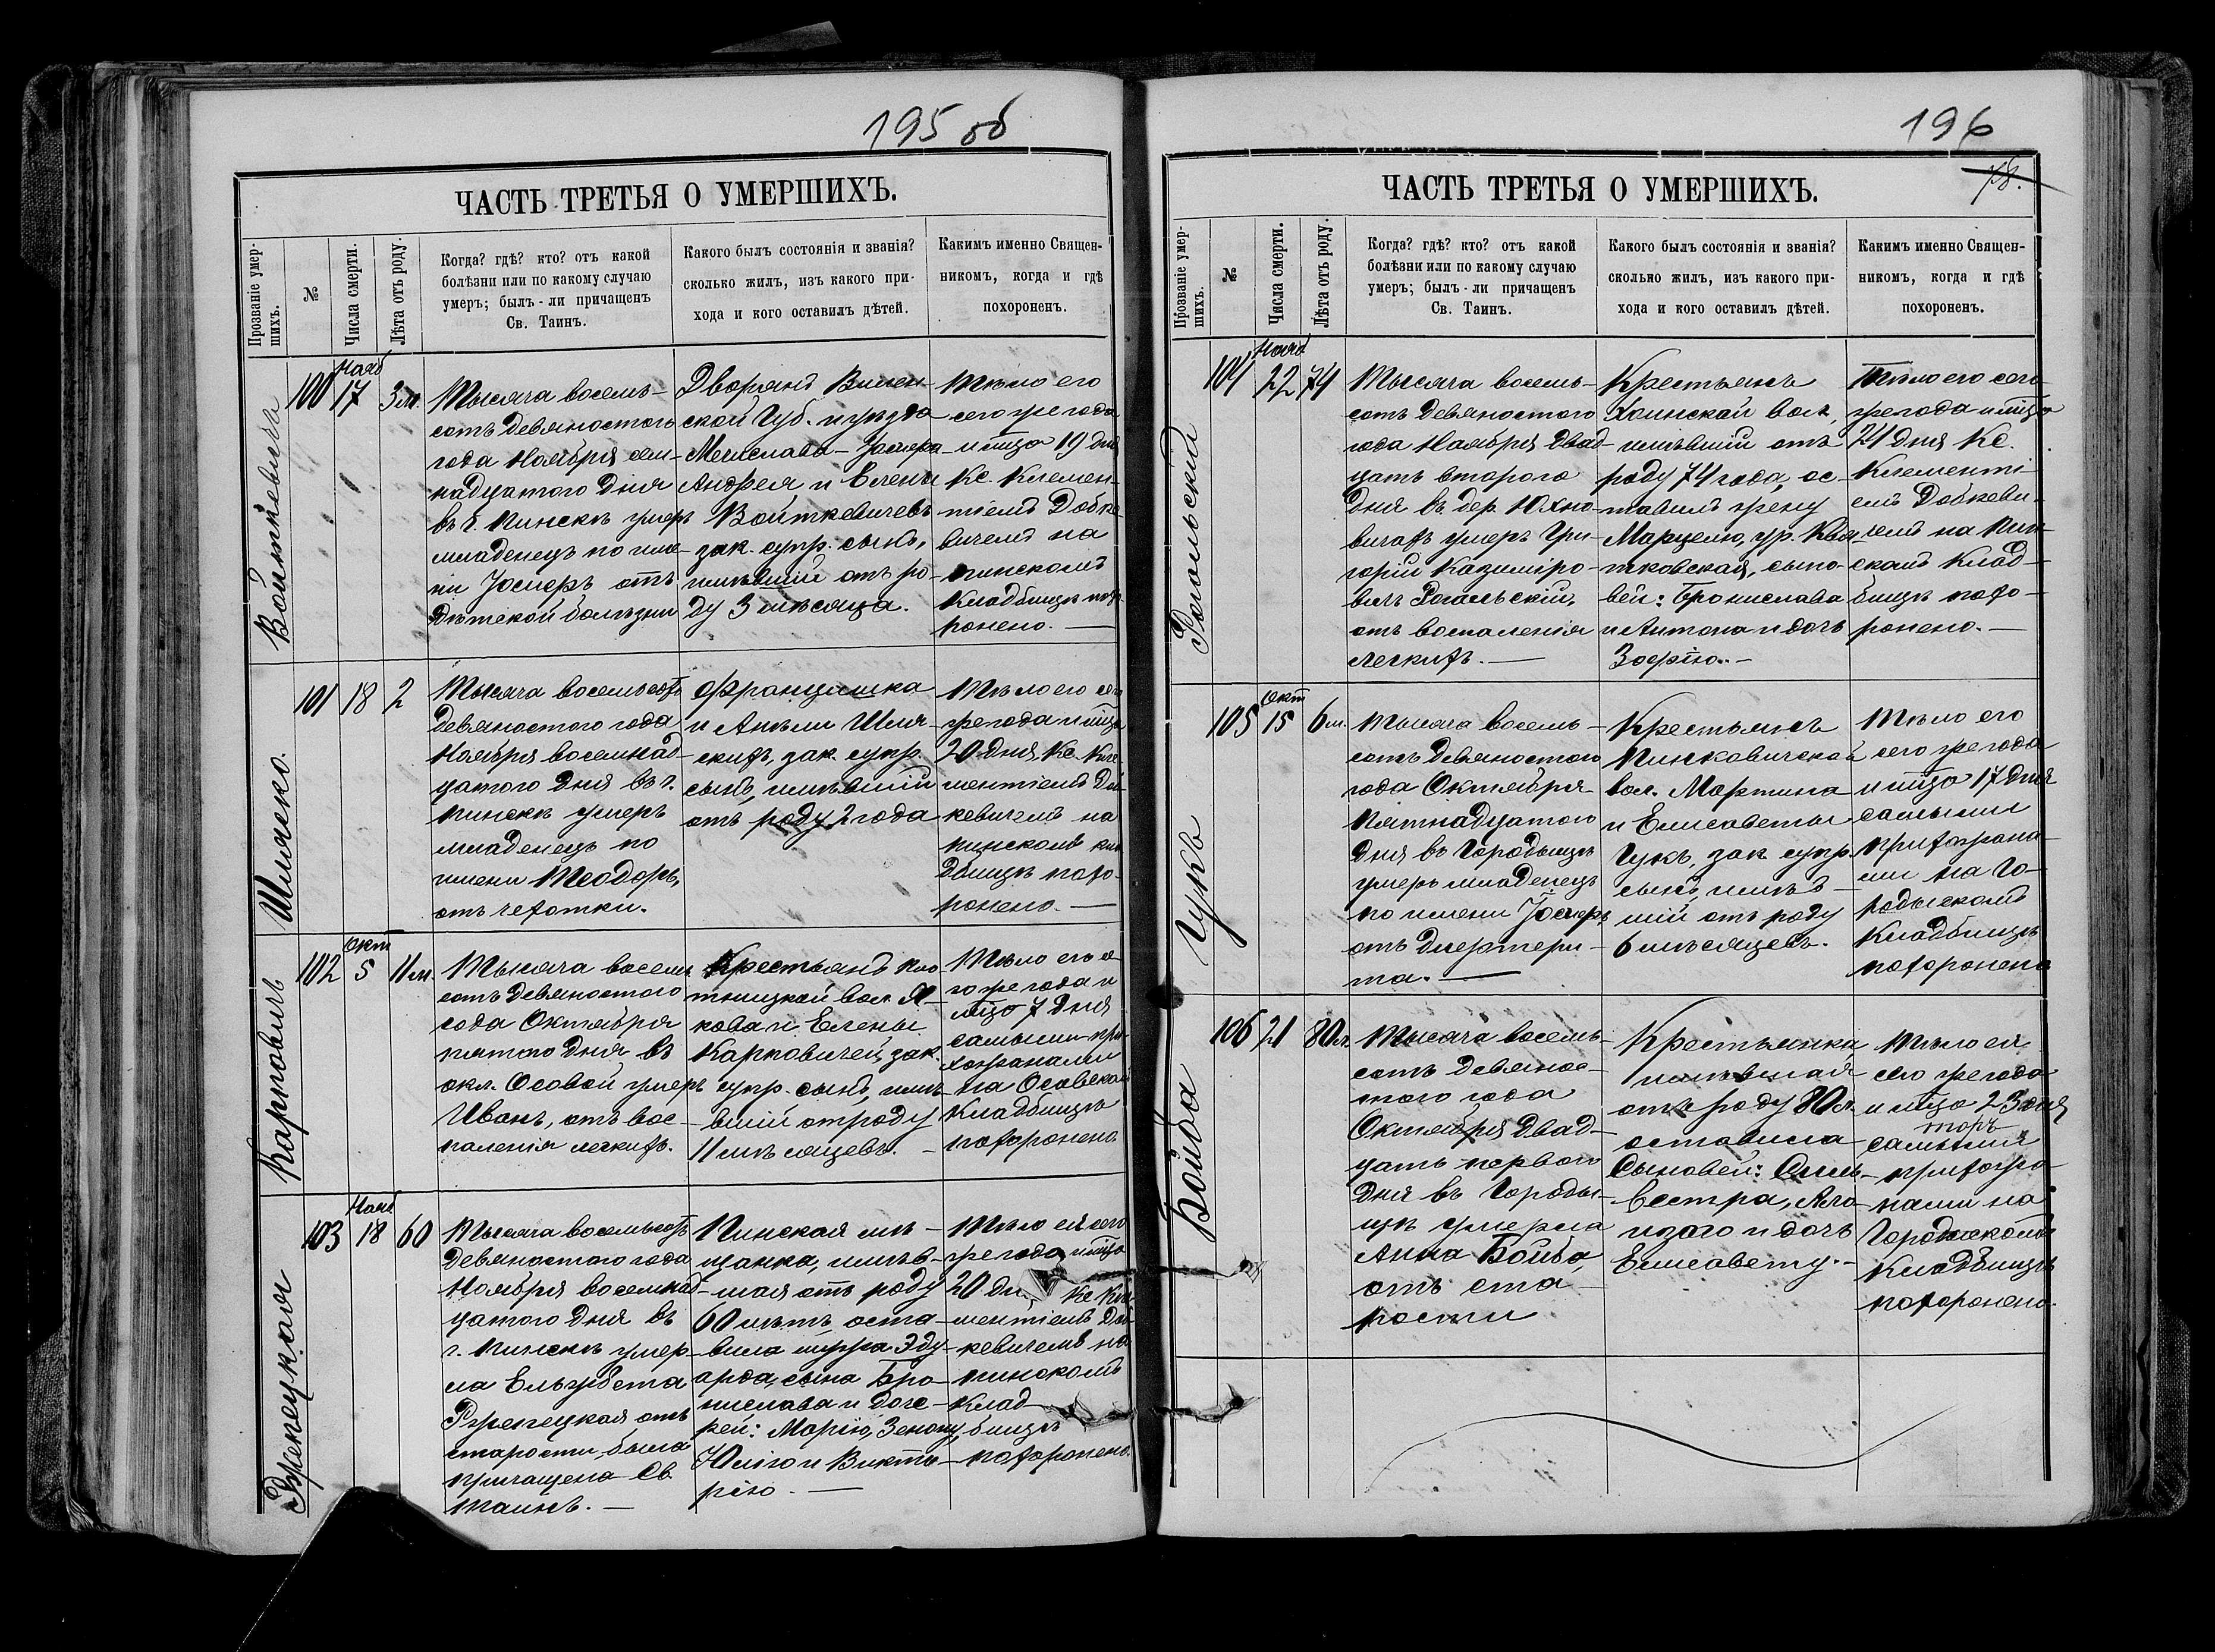 195 об
ЧАСТЬ ТРЕТЬЯ О УМЕРШИХЪ.
Прозваніе умер-
шихъ.
№
Числа смерти.
Лѣта отъ роду.
Когда? гдѣ? кто? отъ какой
болѣзни или по какому случаю
умеръ; былъ-ли причащенъ
Св. Таинъ.
Какого былъ состоянія и званія?
сколько жилъ, изъ какого при-
хода и кого оставилъ дѣтей.
Какимъ именно Священ-
никомъ, когда и гдѣ
похороненъ.
Войткевичъ
100
Нояб
17
3 м.
Тысяча восемь-
сотъ девяностого
года Ноября сем-
надцатого дня
въ г. Пинскѣ умеръ
младенецъ по име-
ни Іосифъ отъ
дѣтской болѣзни
Дворянъ Вилен-
ской Губ. и уѣзда
Мечислава-
Андрея и Елены
Войткевичевъ
зак. супр. сынъ,
имѣвшій отъ ро-
ду 3 мѣсяца.
Тѣло его
сего же года
и мца 19 дня
Кс. Клемен-
тіемъ Добке-
вичемъ на
пинскомъ
кладбищѣ пох-
ронено.
Шляхко.
101
18
2
Тысяча восемьсотъ
девяностого года
Ноября восемнад-
цатого дня въ г.
Пинскѣ умеръ
младенецъ по
имени Теодоръ,
отъ чехотки.
Францишка
и Анели Шля-
скихъ, зак. супр.
сынъ, имѣвшій
отъ роду 2 года
Тѣло его сего
же года и мца
20 дня, Кс. Кле-
ментіемъ Доб-
кевичемъ на
пинскомъ кла-
дбищѣ похо-
ронено.
Карповичъ
102
Окт
5
11 м.
Тысяча восемь
сотъ девяностого
года Октября
пятого дня въ
окл. Осовой умеръ
Иванъ, отъ вос-
паленія легкихъ.
Крестьянъ Пло-
тницкой вол. Я-
кова и Елены
Карповичей, зак.
супр. сынъ, имѣ-
вшій отъ роду
11 мѣсяцевъ.
Тѣло его се-
го же года и
мца 7 дня
самыми при-
хожанами
на Осовском
кладбищѣ
похоронено.
Ржепецкая
103
Нояб
18
60
Тысяча восемьсотъ
девяностого года
Ноября восемнад-
цатого дня въ
г. Пинскѣ умер-
ла Ельжбета
Ржепецкая отъ
старости, была
причащена Св.
Таинъ.
Пинская мѣ-
щанка, имѣв-
шая отъ роду
60 лѣтъ, оста-
вила мужа Эду-
арда, сына Бро-
нислава и доче-
рей: Марію, Зенону,
Юлію и Викто-
рію.
Тѣло ея сего
же года и мца
20 дн. Кс. Кле-
ментіемъ Доб-
кевичемъ на
пинскомъ
клад-
бищѣ
похоронено.
196
ЧАСТЬ ТРЕТЬЯ О УМЕРШИХЪ.
Прозваніе умер-
шихъ.
№
Числа смерти.
Лѣта отъ роду.
Когда? гдѣ? кто? отъ какой
болѣзни или по какому случаю
умеръ; былъ-ли причащенъ
Св. Таинъ.
Какого былъ состоянія и званія?
сколько жилъ, изъ какого при-
хода и кого оставилъ дѣтей.
Какимъ именно Священ-
никомъ, когда и гдѣ
похороненъ.
Рогальский
104
Нояб
22
74
Тысяча восемь-
сотъ девяностого
года Ноября двад-
цать второго
дня въ дер. Юхно-
вичахъ умеръ Гри-
горій Казиміро-
вичъ Рогальскій,
отъ воспаленія
легкихъ.
Крестьянъ
Хоинской вол.,
имѣвшій отъ
роду 74 года, ос-
тавилъ жену
Марцелю, ур. Квя-
тковская, сыно-
вей: Бронислава
и Антона и дочь
Зофію.
Тѣло его сего
же года и мца
24 дня Кс.
Клементі-
емъ Добкеви-
чемъ на Пин-
скомъ клад-
бищѣ похо-
ронено.
Чукъ
105
Окт
15
6 м.
Тысяча восемь-
сотъ девяностого
года Октября
пятнадцатого
дня въ Городыщѣ
умеръ младенецъ
по имени Іосифъ
отъ дифтери-
та.
Крестьянъ
Пинковичской
вол. Мартина
и Елисаветы
Чукъ, зак. супр.
сынъ, имѣв-
шій отъ роду
6 мѣсяцевъ.
Тѣло его
сего же года
и мца 17 дня
самыми
прихожана-
ми на Го-
родыскомъ
кладбищѣ
похоронено
Бойба
106
21
80 л.
Тысяча восемь-
сотъ девянос-
того года
Октября двад-
цать первого
дня въ Городы-
щѣ умерла
Анна Бойба,
отъ ста-
рости
Крестьянка
имѣвшая
отъ роду 80 л.
оставила
сыновей: Силь-
вестра,
и дочь
Елисавету.
Тѣло ея
сего же года
и мца 23 дня
самыми
прихожа-
нами на
Городискомъ
кладбищѣ
похоронено.